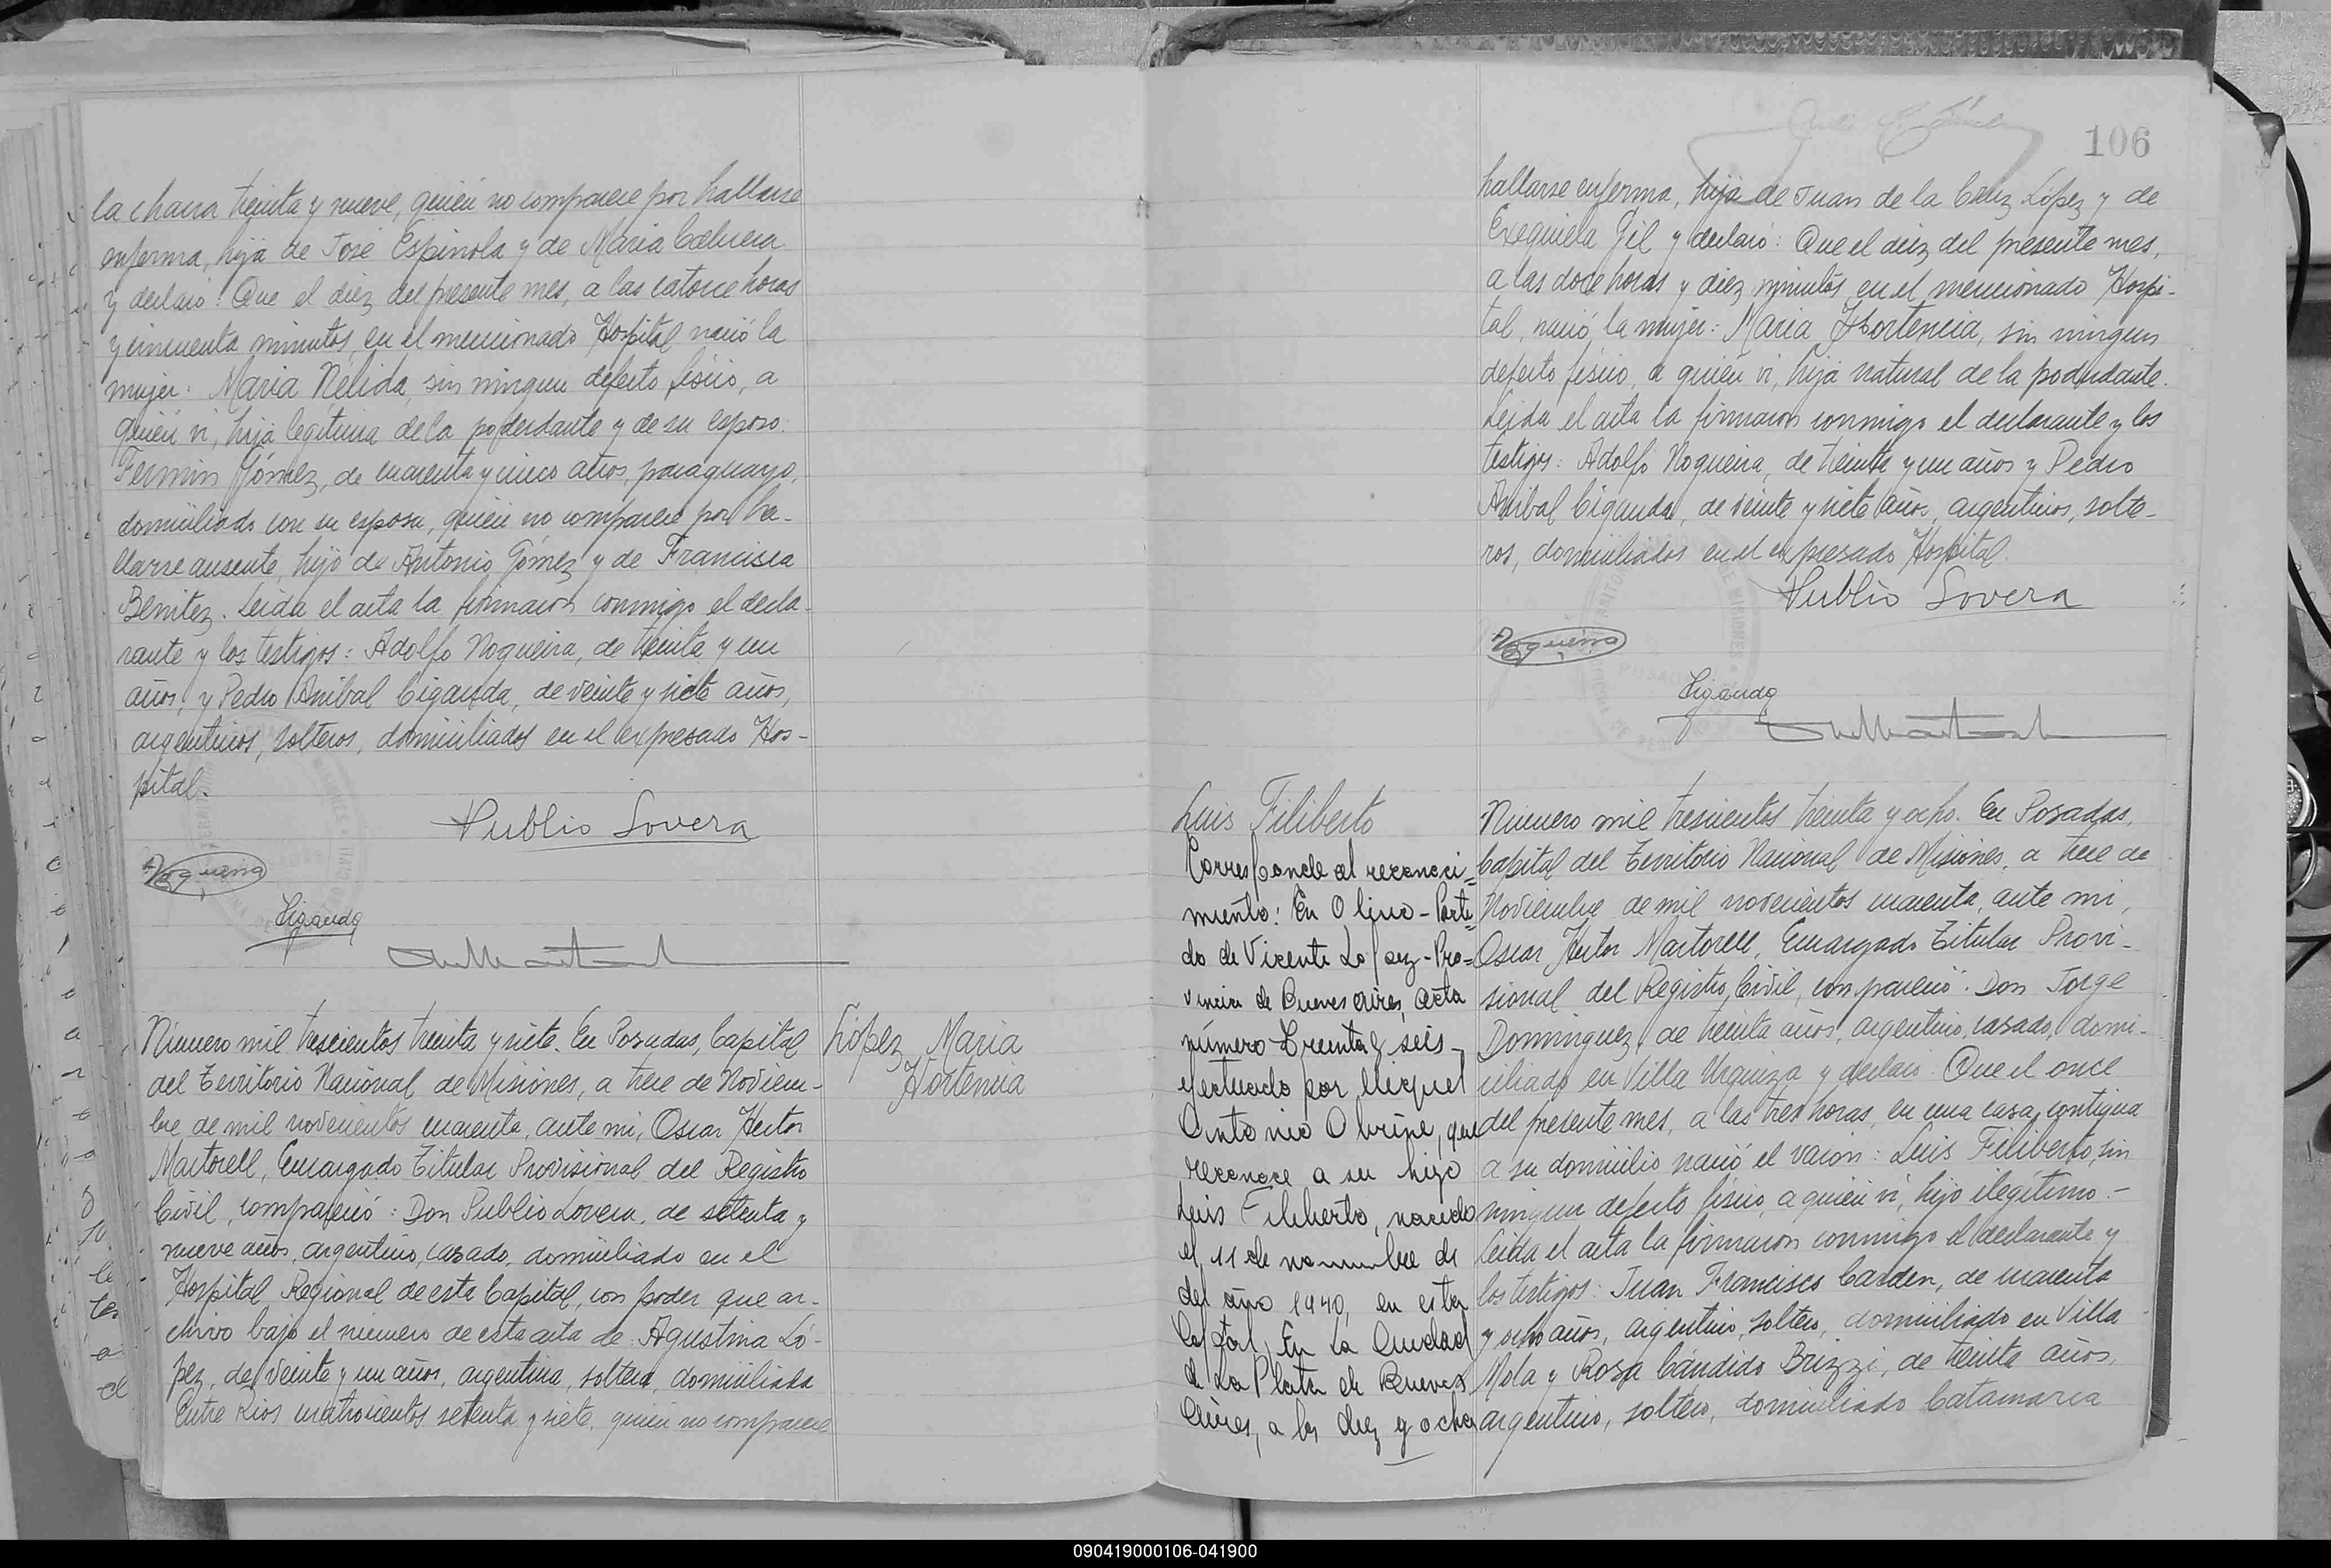 la chacra treinta y nueve, quién no comparece por hallarse
enferma, hija de José Espinola y de Maria Cabrera
y declaró: Que el diez del presente mes, a las catorce horas
y cincuenta minutos, en el mencionado Hospital nació la
mujer: Maria Nélida, sin ningun defecto físico, a
quién vi, hija legítima de la poderdante y de su esposo:
Fermin Gómez, de cuarenta y cinco años, paraguayo,
domiciliado con su esposa, quién no comparece por ha-
llarse ausente, hijo de Antonio Gómez y de Francisca
Benitez. Leida el acta la firmaron conmigo el decla-
rante y los testigos: Adolfo Nogueira, de treinta y un
años, y Pedro Anibal Ciganda, de veinte y siete años,
argentinos, solteros, domiciliados en el expresado Hos-
pital.
Publio Lovera
Nogueira
Ciganda
Numero mil trescientos treinta y siete. En Posadas, Capital
del Territorio Nacional de Misiones, a trece de Noviem-
bre de mil novecientos cuarenta, ante mi, Oscar Hector
Martorell, Encargado Titular Provisional del Registro
Civil, compareció: Don Publio Lovera, de setenta y
nueve años, argentino, casado, domiciliado en el
Hospital Regional de esta Capital, con poder que ar-
chivo bajo el numero de esta acta de: Agustina Ló-
pez, de veinte y un años, argentina, soltera, domiciliada
Entre Rios cuatrocientos setenta y siete, quién no comparece
López Maria
Hortencia
106
hallarse enferma, hija de Juan de la Cruz López y de
Exequiela Gil y declaró: Que el diez del presente mes,
a las doce horas y diez minutos en el mencionado Hospi-
tal, nació la mujer: Maria Hortencia, sin ningun
defecto físico, a quién vi, hija natural de la poderdante.
Leida el acta la firmaron conmigo el declarante y los
testigos: Adolfo Nogueira, de treinta y un años y Pedro
Anibal Ciganda, de veinte y siete años, argentinos, solte-
ros, domiciliados en el expresado Hospital.
Publio Lovera
Nogueira
Ciganda
Luis Filiberto
Corresponde al reconoci=
miento: En Olivo - Parti=
do de Vicente Lopez - Pro=
vincia de Buenos Aires, acta
número treinta y seis -
efectuado por Miguel
Antonio que
reconoce a su hijo
Luis Filiberto, nacido
el 11 de noviembre de
del año 1940, en esta
Capital, En La Ciudad
de La Plata de Buenos
Aires, a los diez y ocho
Numero mil trescientos treinta y ocho. En Posadas,
Capital del Territorio Nacional de Misiones, a trece de
Noviembre de mil novecientos cuarenta, ante mi,
Oscar Hector Martorell, Encargado Titular Provi-
sional del Registro Civil, compareció: Don Jorge
Dominguez, de treinta años, argentino, casado, domi-
ciliado en Villa Urquiza y declaró: Que el once
del presente mes, a las tres horas, en una casa contigua
a su domicilio nació el varón: Luis Filiberto, sin
ningun defecto físico, a quién vi, hijo ilegítimo.-
Leida el acta la firmaron conmigo el declarante y
los testigos: Juan Francisco Carden, de cuarenta
y ocho años, argentino, soltero, domiciliado en Villa
Mola y Rosa Cándido Brizzi, de treinta años,
argentino, soltero, domiciliado Catamarca
090419000106-041900